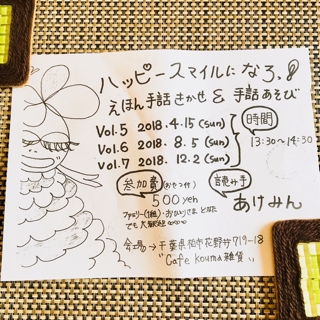 ハッピースマイルになろ!
えほん手話きかせ & 手話あそび
Vol.5 2018.4.15 (sun)
Vol.6 2018.8.5 (sun)
Vol.7 2018.12.2 (sun)
時間
13:30~14:30
参加費(おやつ付)
500yen
ファミリー(1組)・おひとりさま どなた
でも大歓迎
読み手
あけみん
会場→千葉県柏市花野井719-18
"Cafe kouma雑貨"